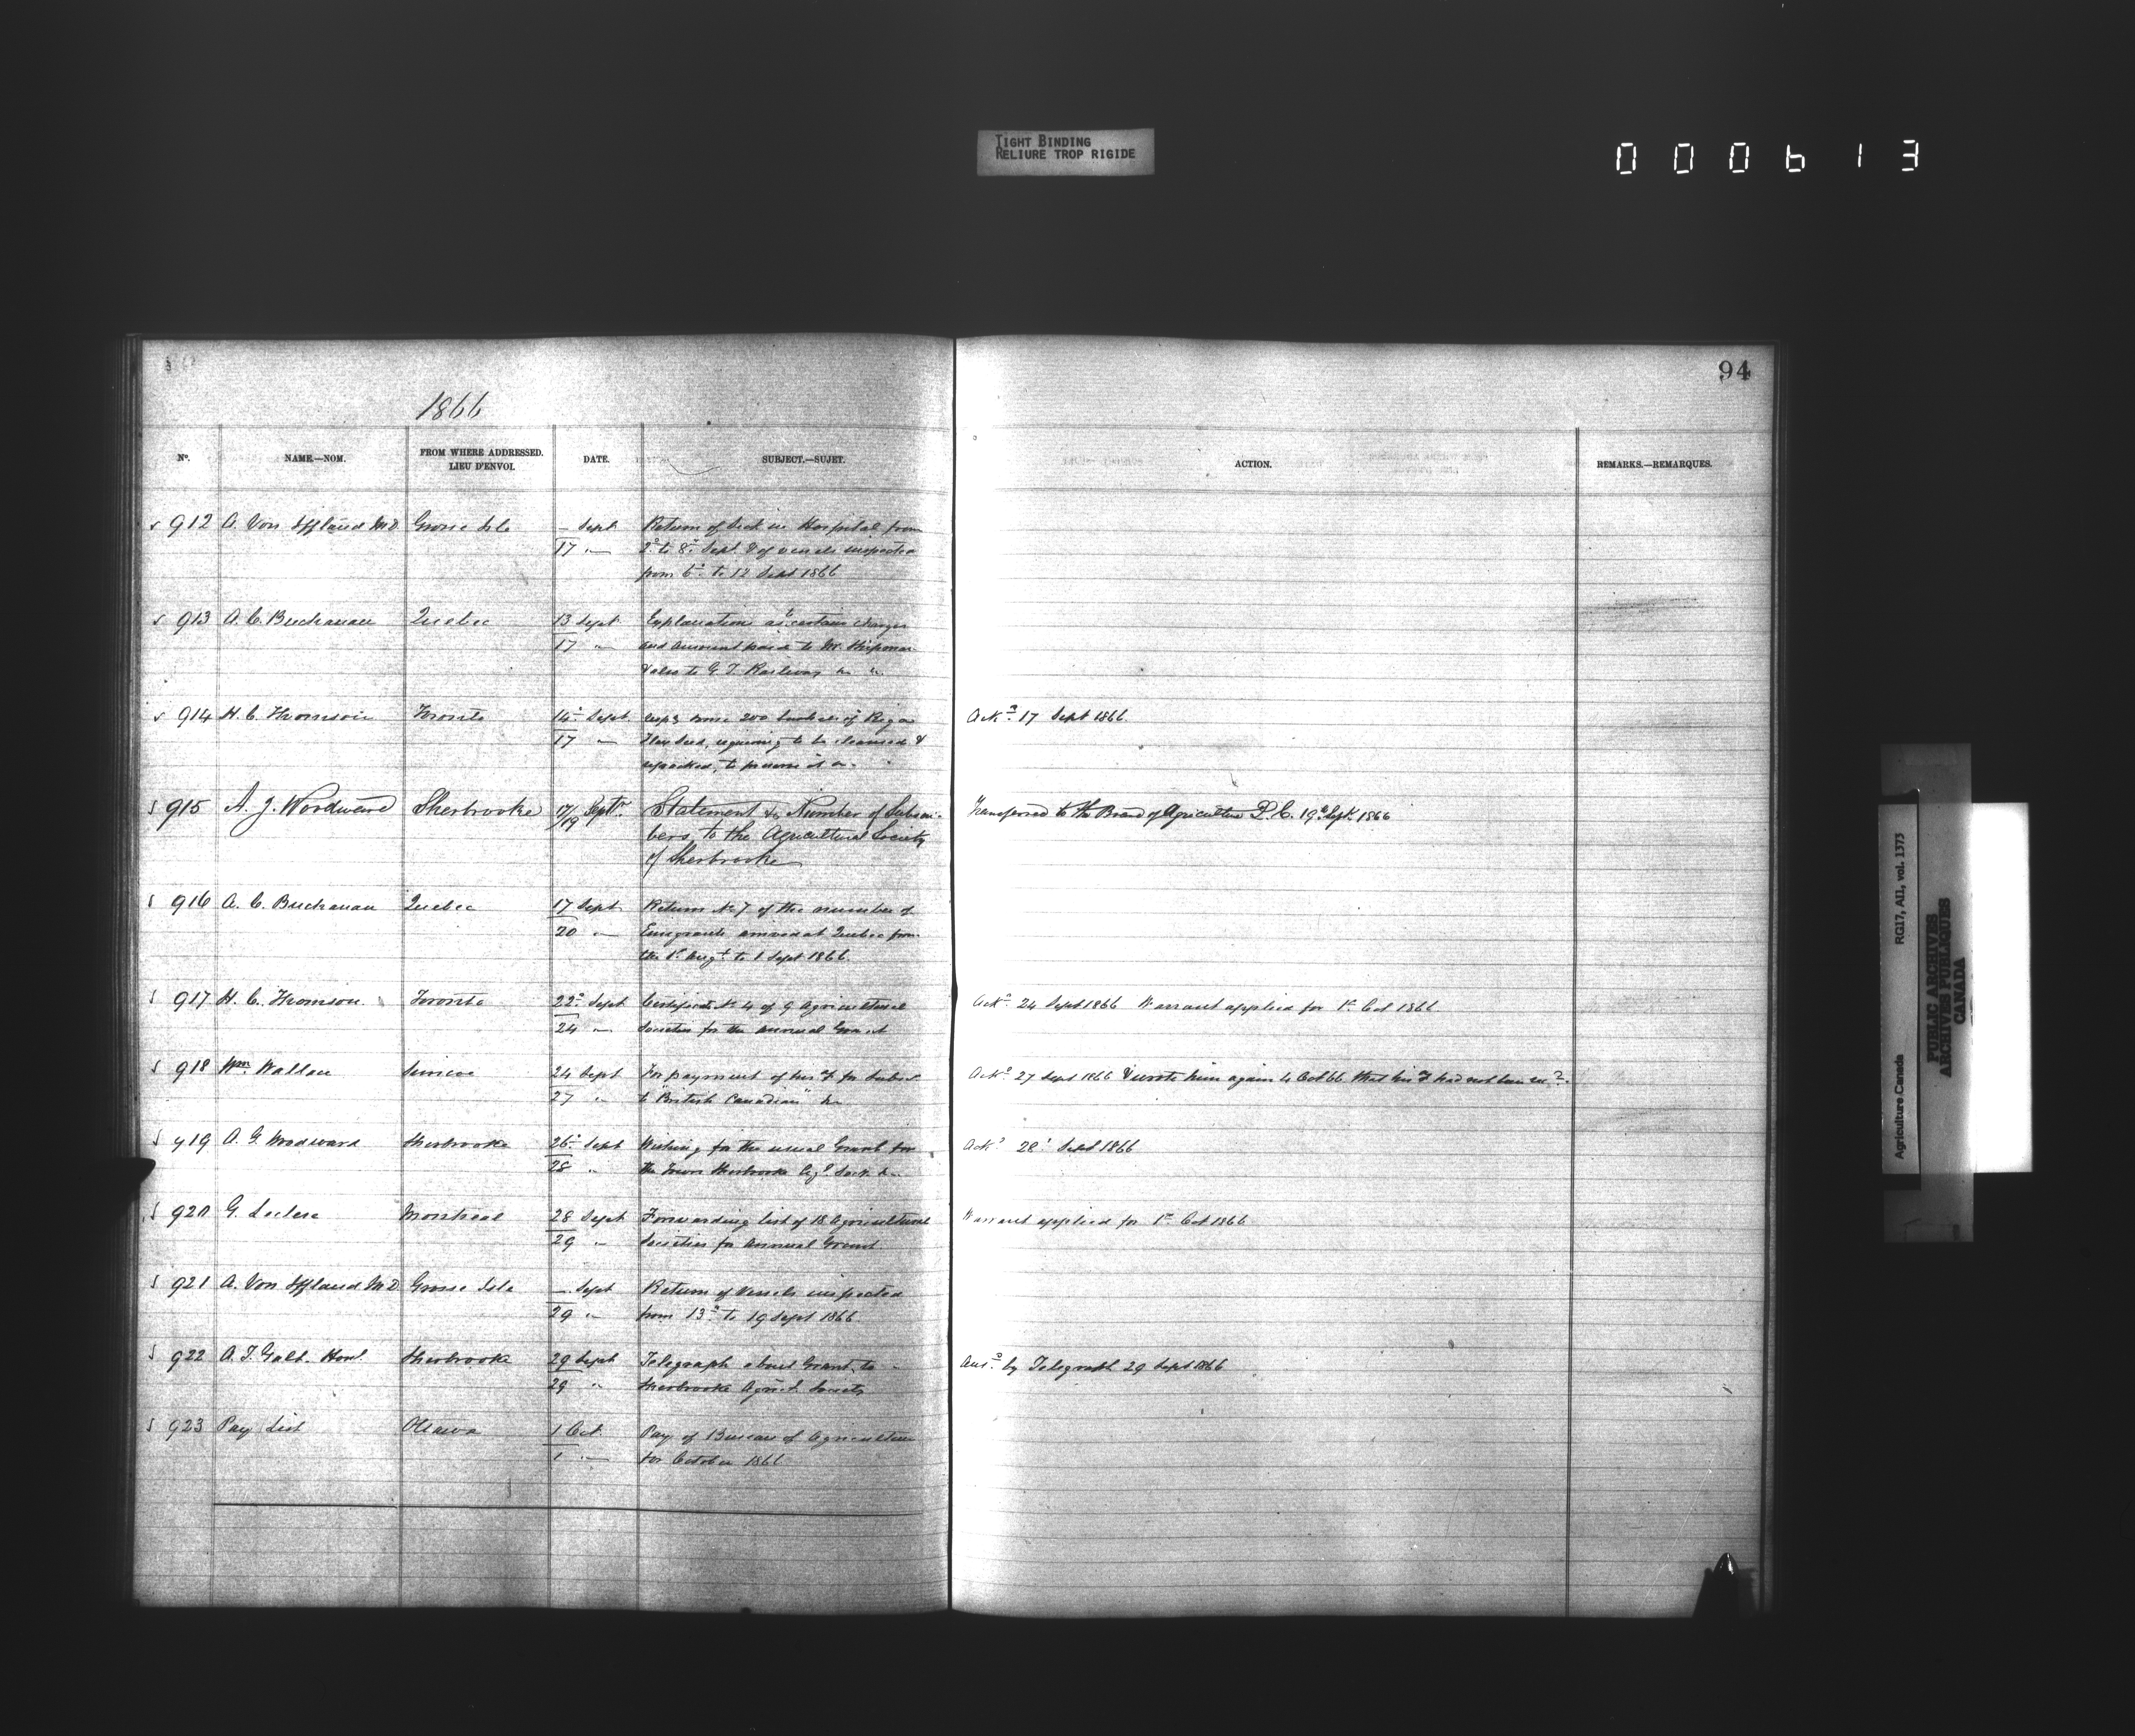 TIGHT BINDING
RELIURE TROP RIGIDE
000613
94
1866
No. NAME.—NOM. FROM WHERE ADDRESSED. LIEU D'ENVOI. DATE. SUBJECT.—SUJET. ACTION. REMARKS.—REMARQUES.
912 A. Von Iffland M.D. Grosse Isle — Sept Return of Sick in Hospital from
17 " 2d to 8th Sept & of vessels inspected
from 6th to 12 Sept 1866
913 A. C. Buchanan Quebec 13 Sept Explanation as to certain charges
17 " and amount paid to Mr.
& also to G. T. Railway &c "
914 H. C. Thomson Toronto 14th Sept 200 bushels of Riga Ackd 17 Sept 1866.
17 " Flax Seed, requiring to be cleansed &
repacked, to preserve it &c
915 A. J. Woodward Sherbrooke 17/19 Septr. Statement & Number of Subscri- Transferred to the Board of Agriculture L. C. 19th Sept. 1866
bers to the Agricultural Society
of Sherbrooke
916 A. C. Buchanan Quebec 17 Sept Return No 7 of the number of
20 " Emigrants arrived at Quebec from
the 1st Augt to 1 Sept 1866.
917 H. C. Thomson Toronto 22d Sept Certificate No 4 of 9 Agricultural Ackd 24 Sept 1866 Warrant applied for 1st Oct 1866
24 " Societies for the annual Grant
918 Wm. Wallace Simcoe 24 Sept For payment of his a/c for Subsn Ackd 27 Sept 1866 & wrote him again 4 Oct 66 that his a/c had not been recd.
27 " to British Canadian" &c
919 A. G. Woodward Sherbrooke 26th Sept Wishing for the usual Grant for Ackd 28th Sept 1866
28 " the Town Sherbrooke Agl. Socty &c
920 G. Leclere Montreal 28 Sept Forwarding list of 18 Agricultural Warrant applied for 1st Oct 1866
29 " Societies for Annual Grant.
921 A. Von Iffland M.D. Grosse Isle — Sept Return of Vessels inspected
29 " from 13th to 19 Sept 1866
922 A. T. Galt. Honl. Sherbrooke 29 Sept Telegraph about Grant to Ansd. by Telegraph 29 Sept 1866
29 " Sherbrooke Agricl. Society
923 Pay List Ottawa 1 Oct Pay of Bureau of Agriculture
1 " for October 1866
Agriculture Canada RG17, AI1, vol. 1373
PUBLIC ARCHIVES
ARCHIVES PUBLIQUES
CANADA